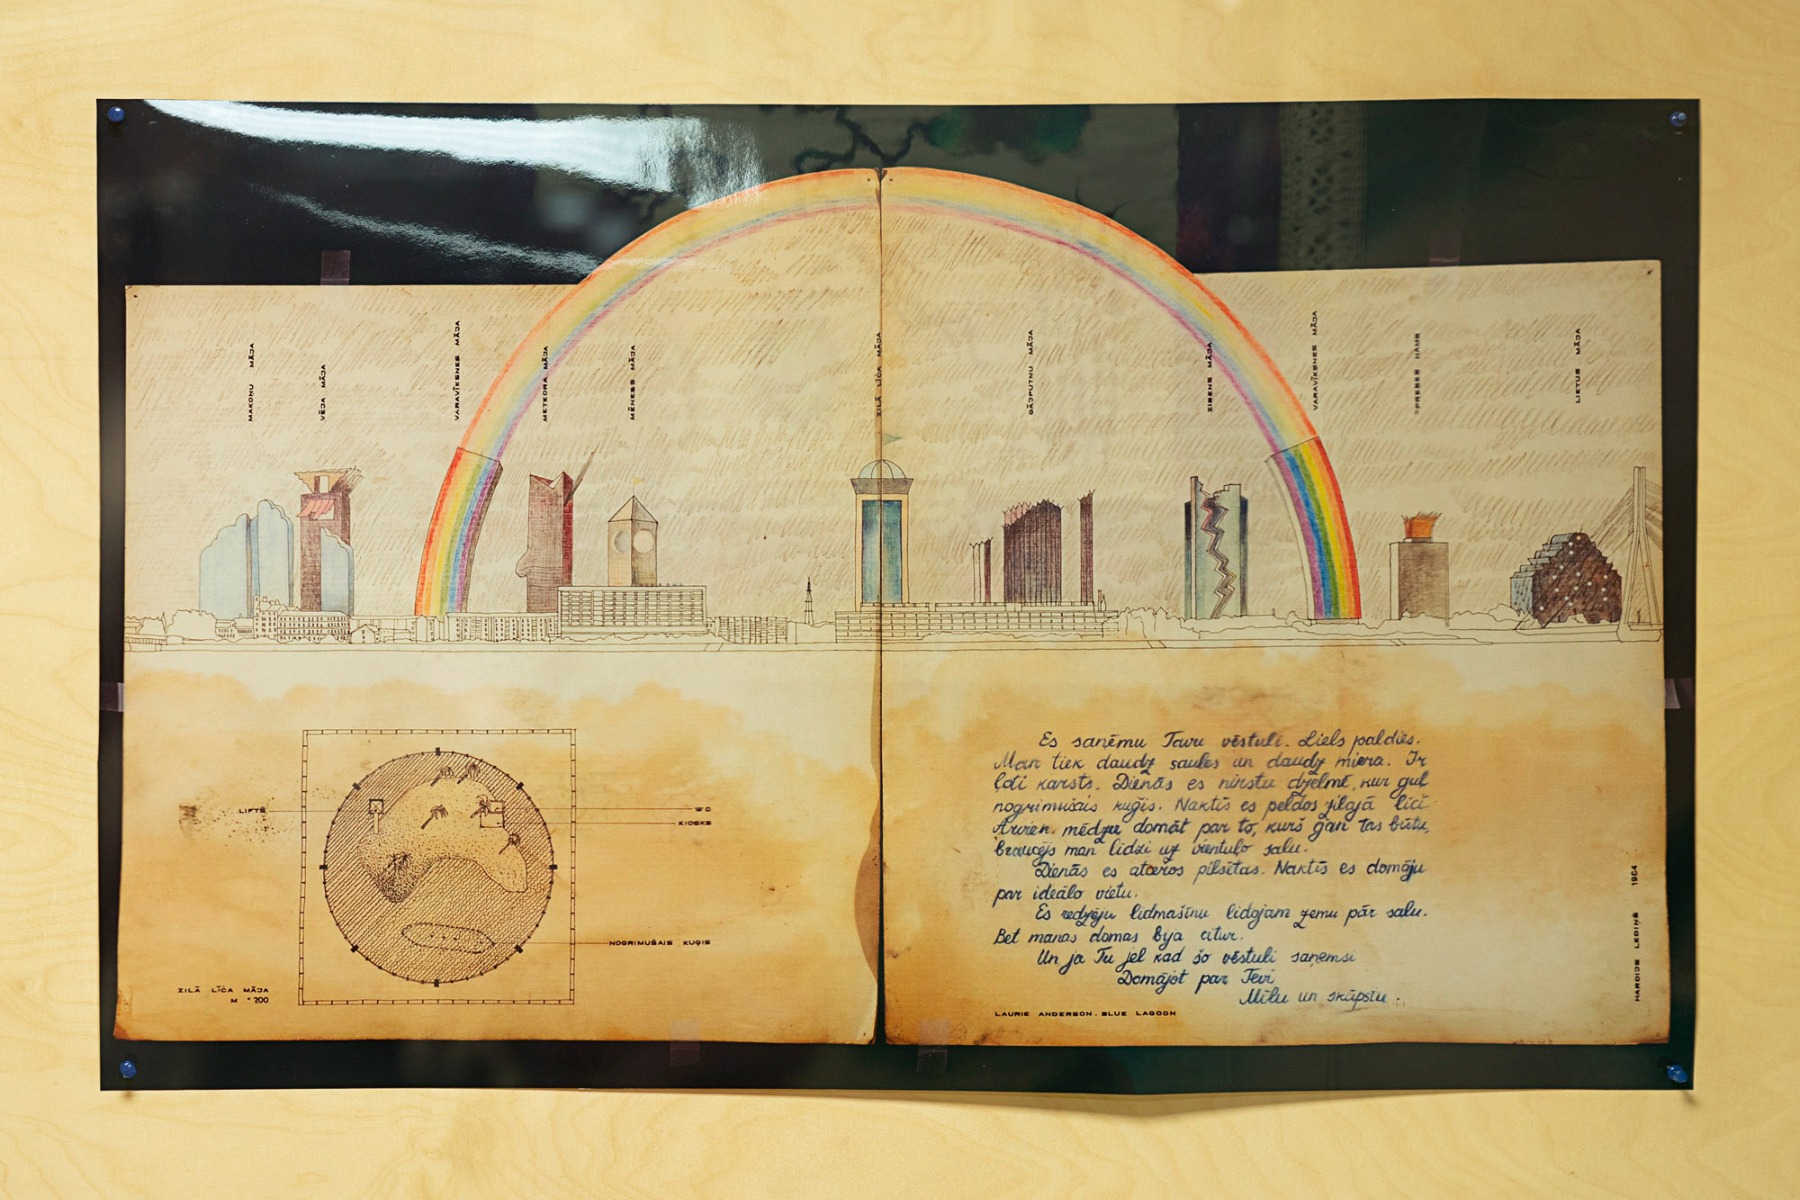 MĀKOŅU MĀJA
VĒJA MĀJA
VARAVĪKSNES MĀJA
METEORA MĀJA
MĒNESS MĀJA
ZILĀ LĪČA MĀJA
GĀJPUTNU MĀJA
ZIBENS MĀJA
VARAVĪKSNES MĀJA
PRESES NAMS
LIETUS MĀJA
LIFTS
WC
KIOSKS
NOGRIMUŠAIS KUĢIS
ZILĀ LĪČA MĀJA
M 1:200
Es saņēmu Tavu vēstuli. Liels paldies.
Man tiek daudz saules un daudz miera. Ir
ļoti karsts. Dienās es nirstu dzelmē, kur guļ
nogrimušais kuģis. Naktīs es peldos zilajā līcī
Arvien mēdzu domāt par to, kurš gan tas būtu,
braucējs man līdzi uz vientuļo salu.
Dienās es atceros pilsētas. Naktīs es domāju
par ideālo vietu.
Es redzēju lidmašīnu lidojam zemu pār salu.
Bet manas domas bija citur.
Un ja Tu jel kad šo vēstuli saņemsi
Domājot par Tevi
Mīlu un skūpstu.
LAURIE ANDERSON. BLUE LAGOON
HARDIJS LEDIŅŠ 1984